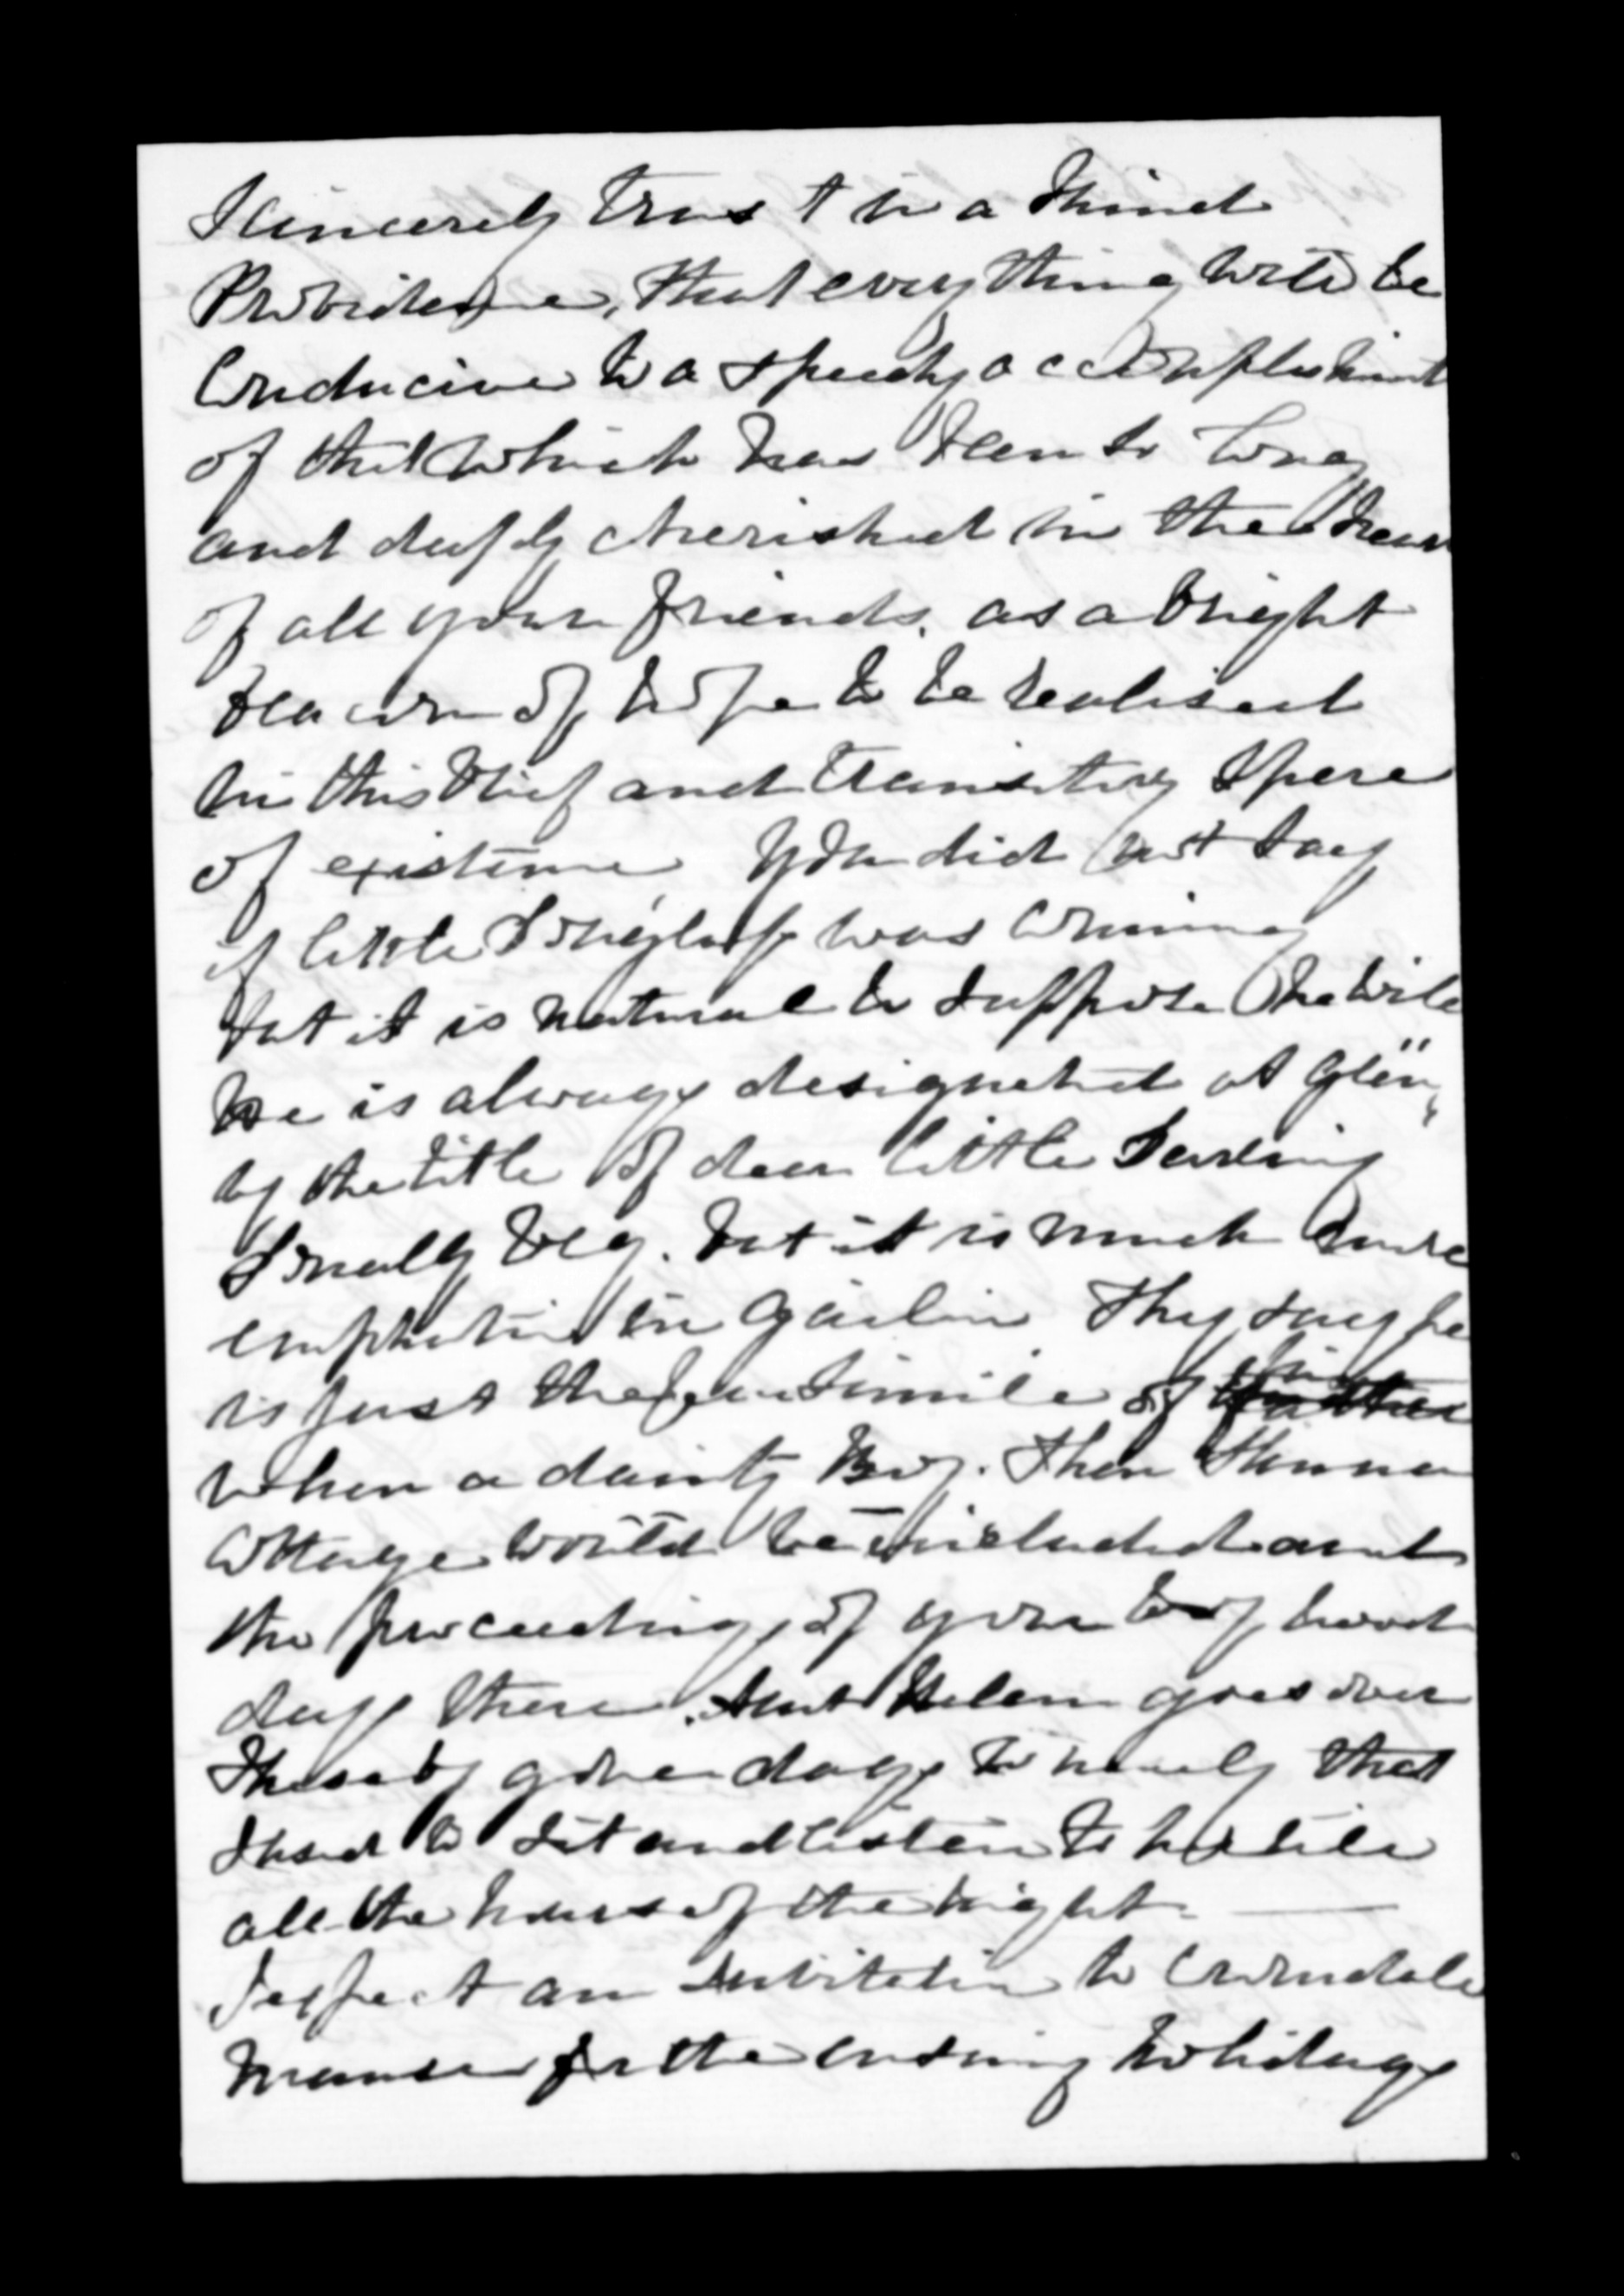 I sincerely trust in a kind
Providence, that everything will be
Conducive to a speedy accomplishment
of that which has been so long
and deeply cherished in the hear
of all your friends. as a bright
beacon of hope to be realised
in this brief and transitory spere
of existence You did not say
if little Douglas was coming
but it is natural to suppose he will
he is always designated at Glen
by the title of dear little Darling
Donally beg. but it is much more
emphatic in Gaelic They say he
is just the facsimile of his father
when a dainty Boy. Then
Cottage would be included and
the proceedings of your boy hood
days there. Aunt Helen goes over
these by gone days to newly that
I had to sit and listen to her till
all the hours of the night. —
I expect an Invitation to
Manse for the ensuing holidays